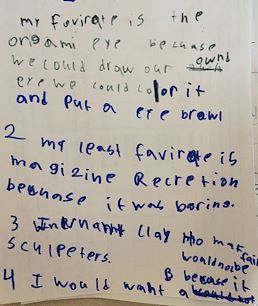 my favirate is the
origami eye because
we could draw our ownd
eye we could color it
and put a eye brawl
2 my least favirate is
magizine Recretion
becuase it was boring.
3 clay
sculpeters.
because it
4 I would want a